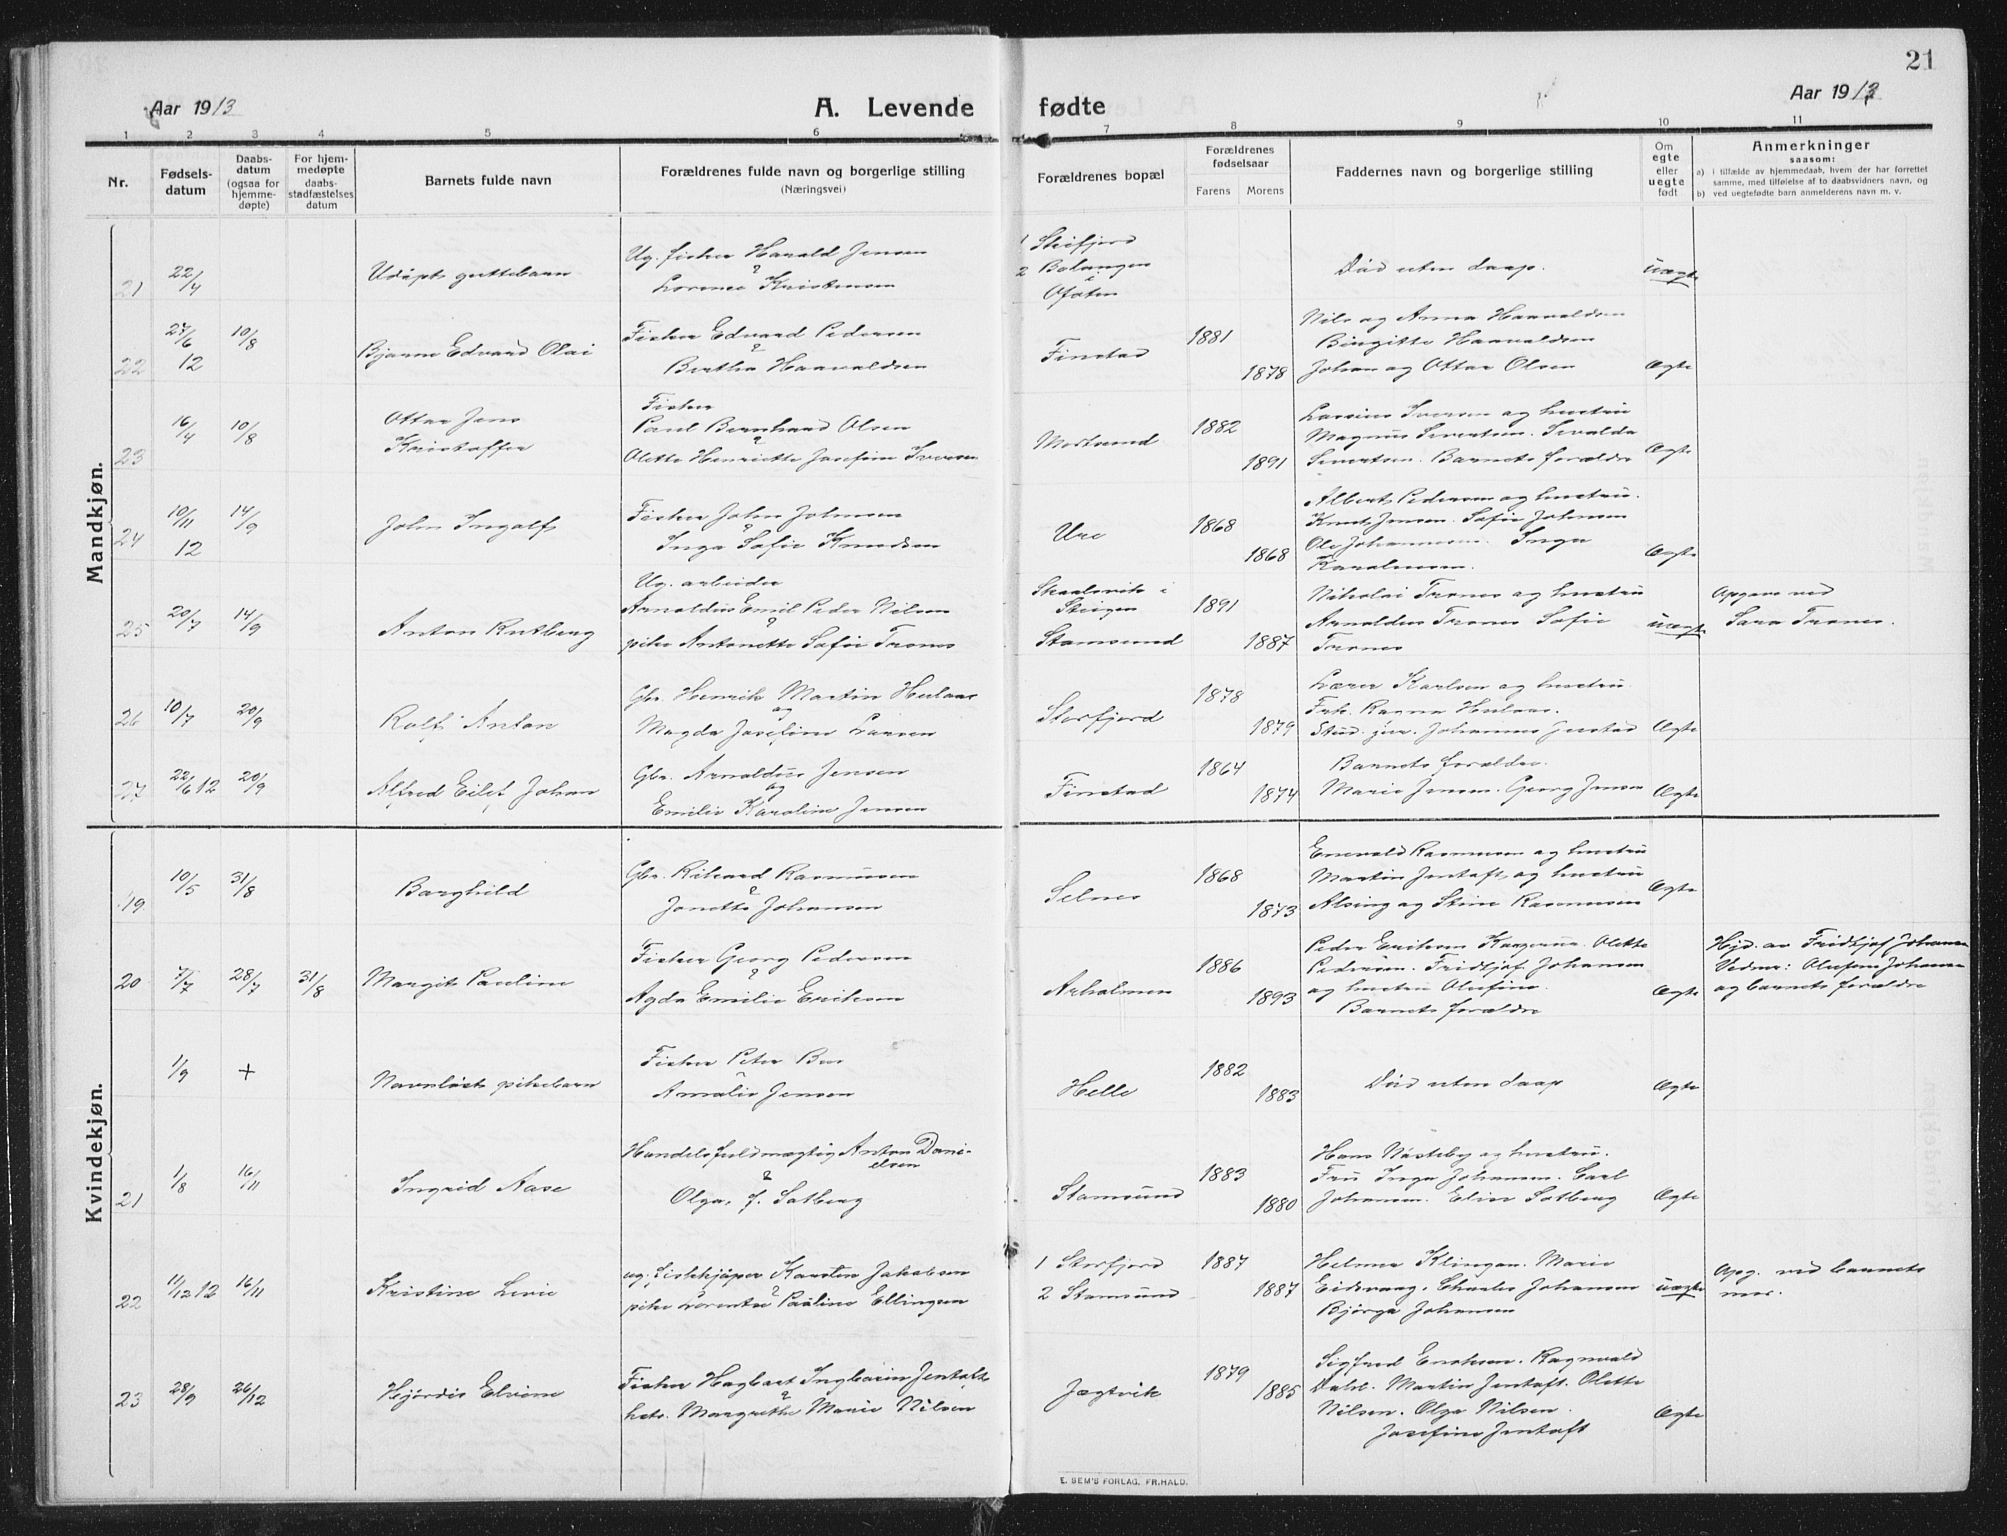 21
Aar 1913
A. Levende fødte
Aar 1913
1 2 3 4 5 6 7 8 9 10 11
Nr.
Fødsels-
datum
Daabs-
datum
(ogsaa for
hjemme-
døpte)
For hjem-
medøpte
daabs-
stadfæstelses
datum
Barnets fulde navn
Forældrenes fulde navn og borgerlige stilling
(Næringsvei)
Forældrenes bopæl
Forældrenes
fødselsaar
Farens Morens
Faddernes navn og borgerlige stilling
Om
egte
eller
uegte
født
Anmerkninger
saasom:
a) i tilfælde av hjemmedaab, hvem der har forrettet
samme, med tilføielse af to daabsvidners navn, og
b) ved uegtefødte barn anmelderens navn m. v.
Mandkjøn.
21 22/4 Udøpt guttebarn
Ug. fisker Harald Jensen
&
Lorense Kristensen
2 Balangen
i
Ofoten
Död uten daap. uægte
22 27/6 12 10/8 Bjarne Edvard Olai
Fisker Edvard Pedersen
&
Bertha Haavaldsen
Finstad 1881 1878
Nils og Anna Haavaldsen
Birgitte Haavaldsen
Johan og Ottar Olsen
Ægte
23 16/4 10/8 Ottar Jens
Kristoffer
Fisker
Paul Bernhard Olsen
&
Olette Henriette Josefine Iversen
Mortsund 1882 1891
Iversen og hustru
Magnus Sivertsen. Sevalda
Sivertsen. Barnets forældre
Ægte
24 10/11 12 14/9 John Ingolf
Fisker John Johnsen
&
Inga Sofie Knudsen
Ure 1868 1868
Albert Pedersen og hustru.
Knut Jensen. Sofie Johnsen
Ole Johannesen. Inga
Karolussen.
Ægte
25 20/7 14/9 Anton Rutberg
Ug. arbeider
Arnoldus Emil Peder Nilsen
&
pike Antonette Sofie Trones
Skaalsvik i
Steigen
Stamsund 1891 1887
Nikolai Trones og hustru
Arnoldus Trones Sofie
Trones
uægte
Opgave ved
Sara Trones.
26 10/7 20/9 Rolf Anton
Gbr. Henrik Martin Hulaas
og
Magda Josefine Larsen
Storfjord 1878 1879
Lærer Karlsen og hustru
Frk. Ragna Hulaas.
Stud. jur. Johannes Justad
Ægte
27 22/6 12 20/9 Alfred Eilef Johan
Gbr. Arnoldus Jensen
og
Emilie Karoline Jensen
Finstad 1864 1874
Barnets forældre.
Marie Jensen. Georg Jensen
Ægte
Kvindekjøn.
19 10/5 31/8 Borghild
Gbr. Rikard Rasmussen
&
Janette Johansen
Selnes 1868 1873
Enevald Rasmussen og hustru
Martin Jentoft og hustru
Alsing og Stine Rasmussen
Ægte
20 7/7 28/7 31/8 Margit Pauline
Fisker Georg Pedersen
Agda Emilie Eriksen
Arholmen 1886 1893
Peder Eriksen Olette
Pedersen. Fridtjof Johansen
og hustru Olufine.
Barnets forældre
Ægte
Hjd. av Fridtjof Johansen
Vidner: Olufine Johansen
og barnets forældre
1/9 + Navnløst pikebarn
Fisker Peter Boe
Amalie Jensen
Helle 1882 1883
Död uten daap
Ægte
21 1/8 16/11 Ingrid Aase
Handelsfuldmægtig Anton Dani-
elsen
&
Olga, J. Solberg
Stamsund 1883 1880
Hans Nästeby og hustru.
Fru Inga Johansen. Carl
Johansen. Elise Solberg
Ægte
22 11/12 12 16/11 Kristine Livie
ug. fiskekjøper Karsten Jakobsen
&
pike Lorentse Pauline Ellingsen
1 Storfjord
2 Stamsund 1887 1887
Helmer Klingan. Marie
Eidsvaag. Charles Johansen
Bjørga Johansen
uægte
Opg. ved barnets
mor.
23 28/9 26/12 Hjørdis Elvine
Fisker Hagbart Ingbarm Jentoft
&
hst. Margrethe Marie Nilsen
Jægtvik 1879 1885
Sigfred Enoksen. Ragnvald
Dahl. Martin Jentoft. Olette
Nilsen. Olga Nilsen.
Josefine Jentoft
Ægte
E. SEM'S FORLAG. FR.HALD.